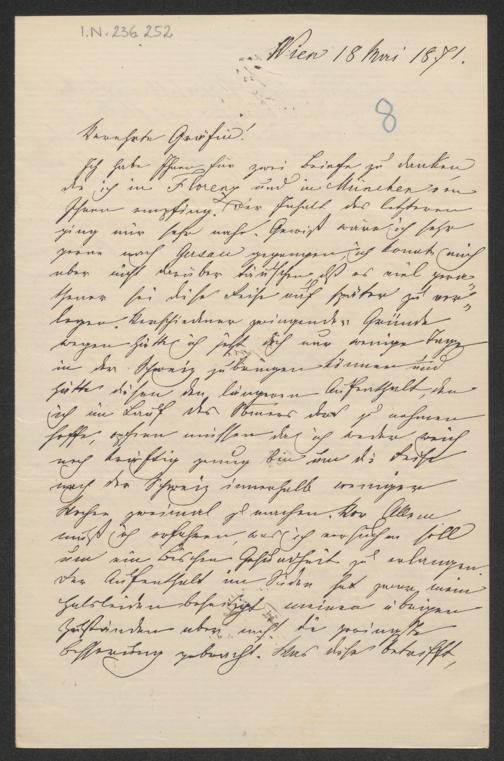 I.N. 236.252
Wien 18 Mai 1871.
8
Verehrte Gräfin!
Ich habe Ihnen für zwei Briefe zu danken
die ich in Florenz und in München von
Ihnen empfing. Der Inhalt des letzteren
ging mir sehr nahe. Gewiß wäre ich sehr
gerne nach gegangen, ich konnte mich
aber nicht darüber täuschen daß es viel gera-
thener sei diese Reise auf später zu ver-
legen. Verschiedener zwingender Gründe
wegen hätte ich jetzt doch nur wenige Tage
in der Schweiz zubringen können und
hätte diesen den längeren Aufenthalt, den
ich im Laufe des Somers dort zu nehmen
hoffe, opfern müssen da ich weder reich
noch kräftig genug bin um die Reise
nach der Schweiz innerhalb weniger
Wochen zweimal zu machen. Vor Allem
muß ich erfahren, was ich versuchen soll
um ein bischen Gesundheit zu erlangen.
Der Aufenthalt im Süden hat zwar mein
Halsleiden beseitigt meinen übrigen
Zuständen aber nicht die geringste
Besserung gebracht. Was diese betrifft,